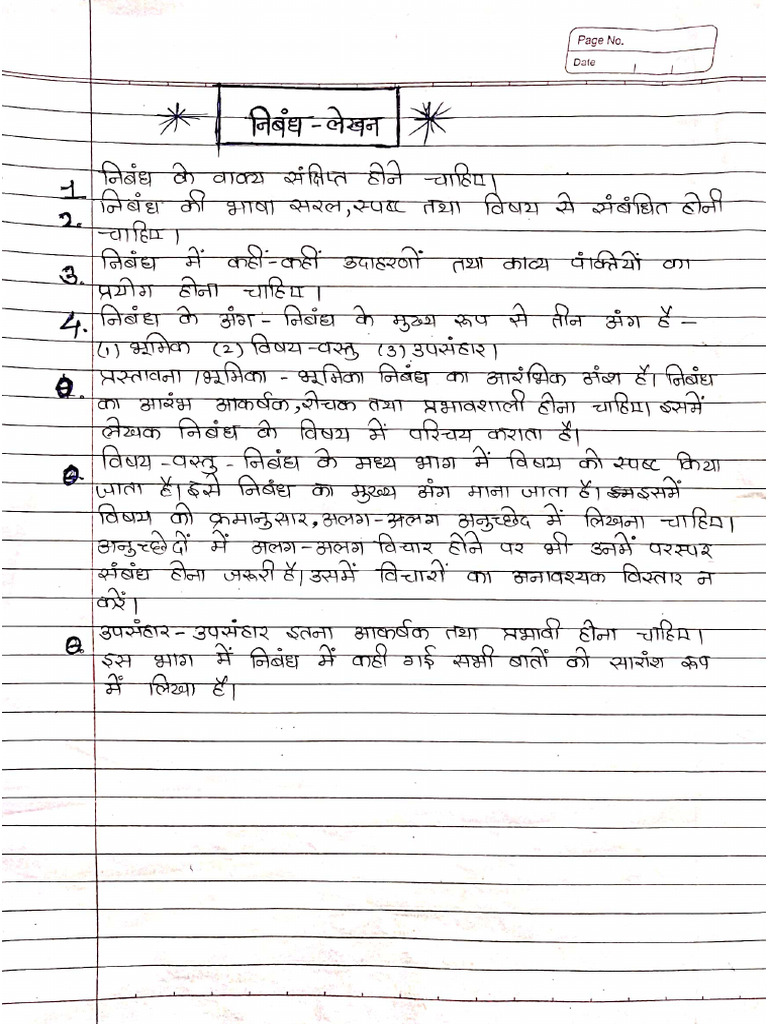 Page No.
Date
निबंध - लेखन
1 निबंध के वाक्य संक्षिप्त होने चाहिए।
2. निबंध की भाषा सरल, स्पष्ट तथा विषय से संबंधित होनी
चाहिए।
3. निबंध में कहीं-कहीं उदाहरणों तथा काव्य पंक्तियों का
प्रयोग होना चाहिए।
4. निबंध के अंग - निबंध के मुख्य रूप से तीन अंग है -
(1) भूमिक (2) विषय-वस्तु (3) उपसंहार।
प्रस्तावना / भूमिका - भूमिका निबंध का आरंभिक अंश है। निबंध
का आरंभ आकर्षक, रोचक तथा प्रभावशाली होना चाहिए। इसमें
लेखक निबंध के विषय में परिचय कराता है।
विषय-वस्तु - निबंध के मध्य भाग में विषय को स्पष्ट किया
जाता है। इसे निबंध का मुख्य अंग माना जाता है। इसमें
विषय को क्रमानुसार, अलग-अलग अनुच्छेद में लिखना चाहिए।
अनुच्छेदों में अलग-अलग विचार होने पर भी उनमें परस्पर
संबंध होना जरूरी है। उसमें विचारों का अनावश्यक विस्तार न
करें।
उपसंहार - उपसंहार इतना आकर्षक तथा प्रभावी होना चाहिए।
इस भाग में निबंध में कही गई सभी बातों को सारांश रूप
में लिखा है।